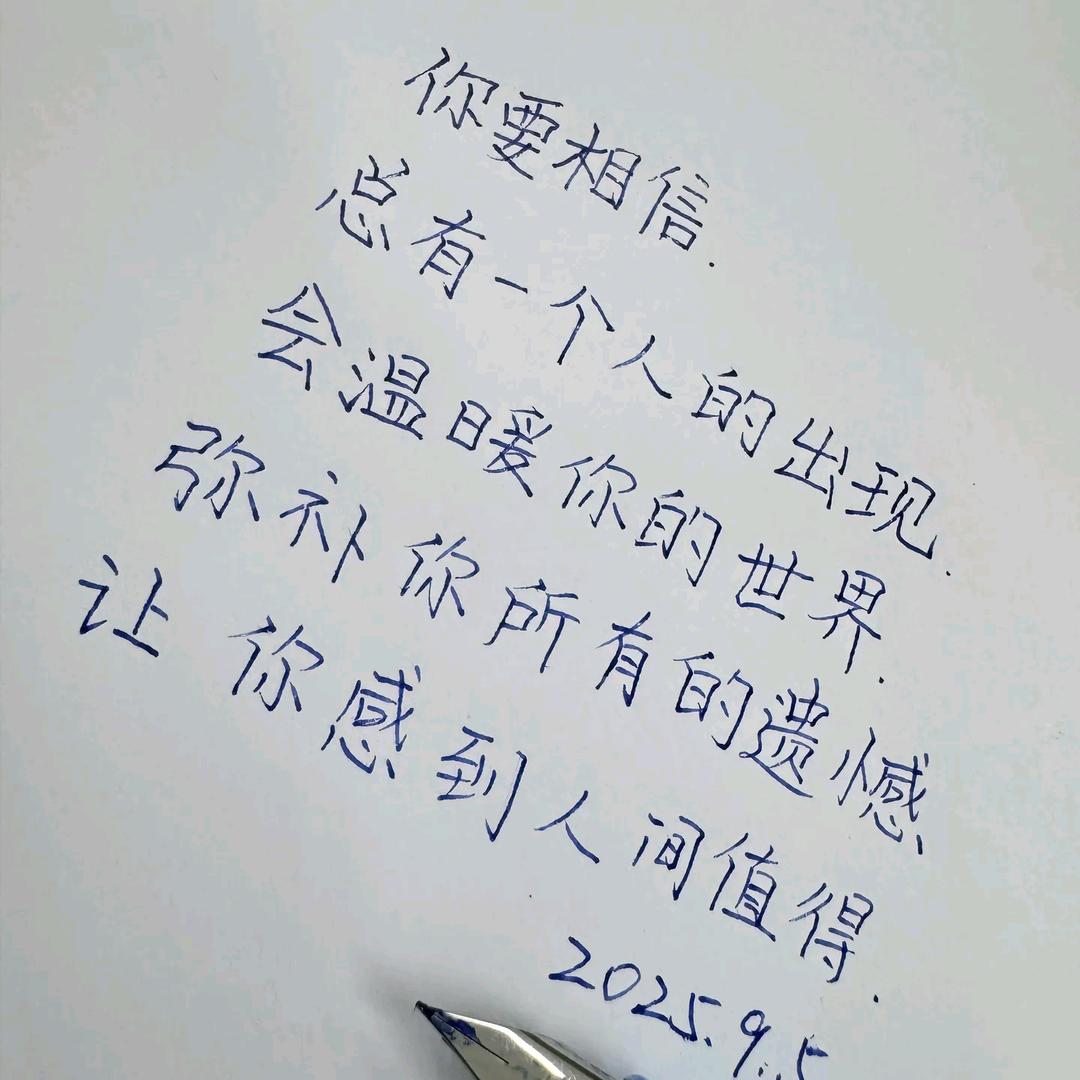 你要相信.
总有一个人的出现.
会温暖你的世界.
弥补你所有的遗憾
让你感到人间值得.
2025.9.5